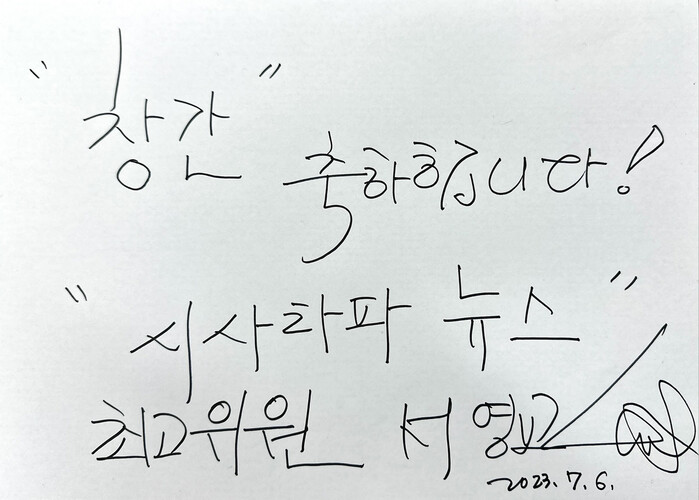 "창간"
축하합니다!
"시사타파 뉴스"
최고위원 서영교
2023. 7. 6.